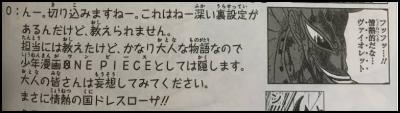 O：んー。切り込みますねー。これはねー深い裏設定が
あるんだけど、教えられません。
担当には教えたけど、かなり大人な物語なので
少年漫画ONE PIECEとしては隠します。
大人の皆さんは妄想してみてください。
まさに情熱の国ドレスローザ!!
フッフッ…!!
情熱的だな…
ヴァイオレット